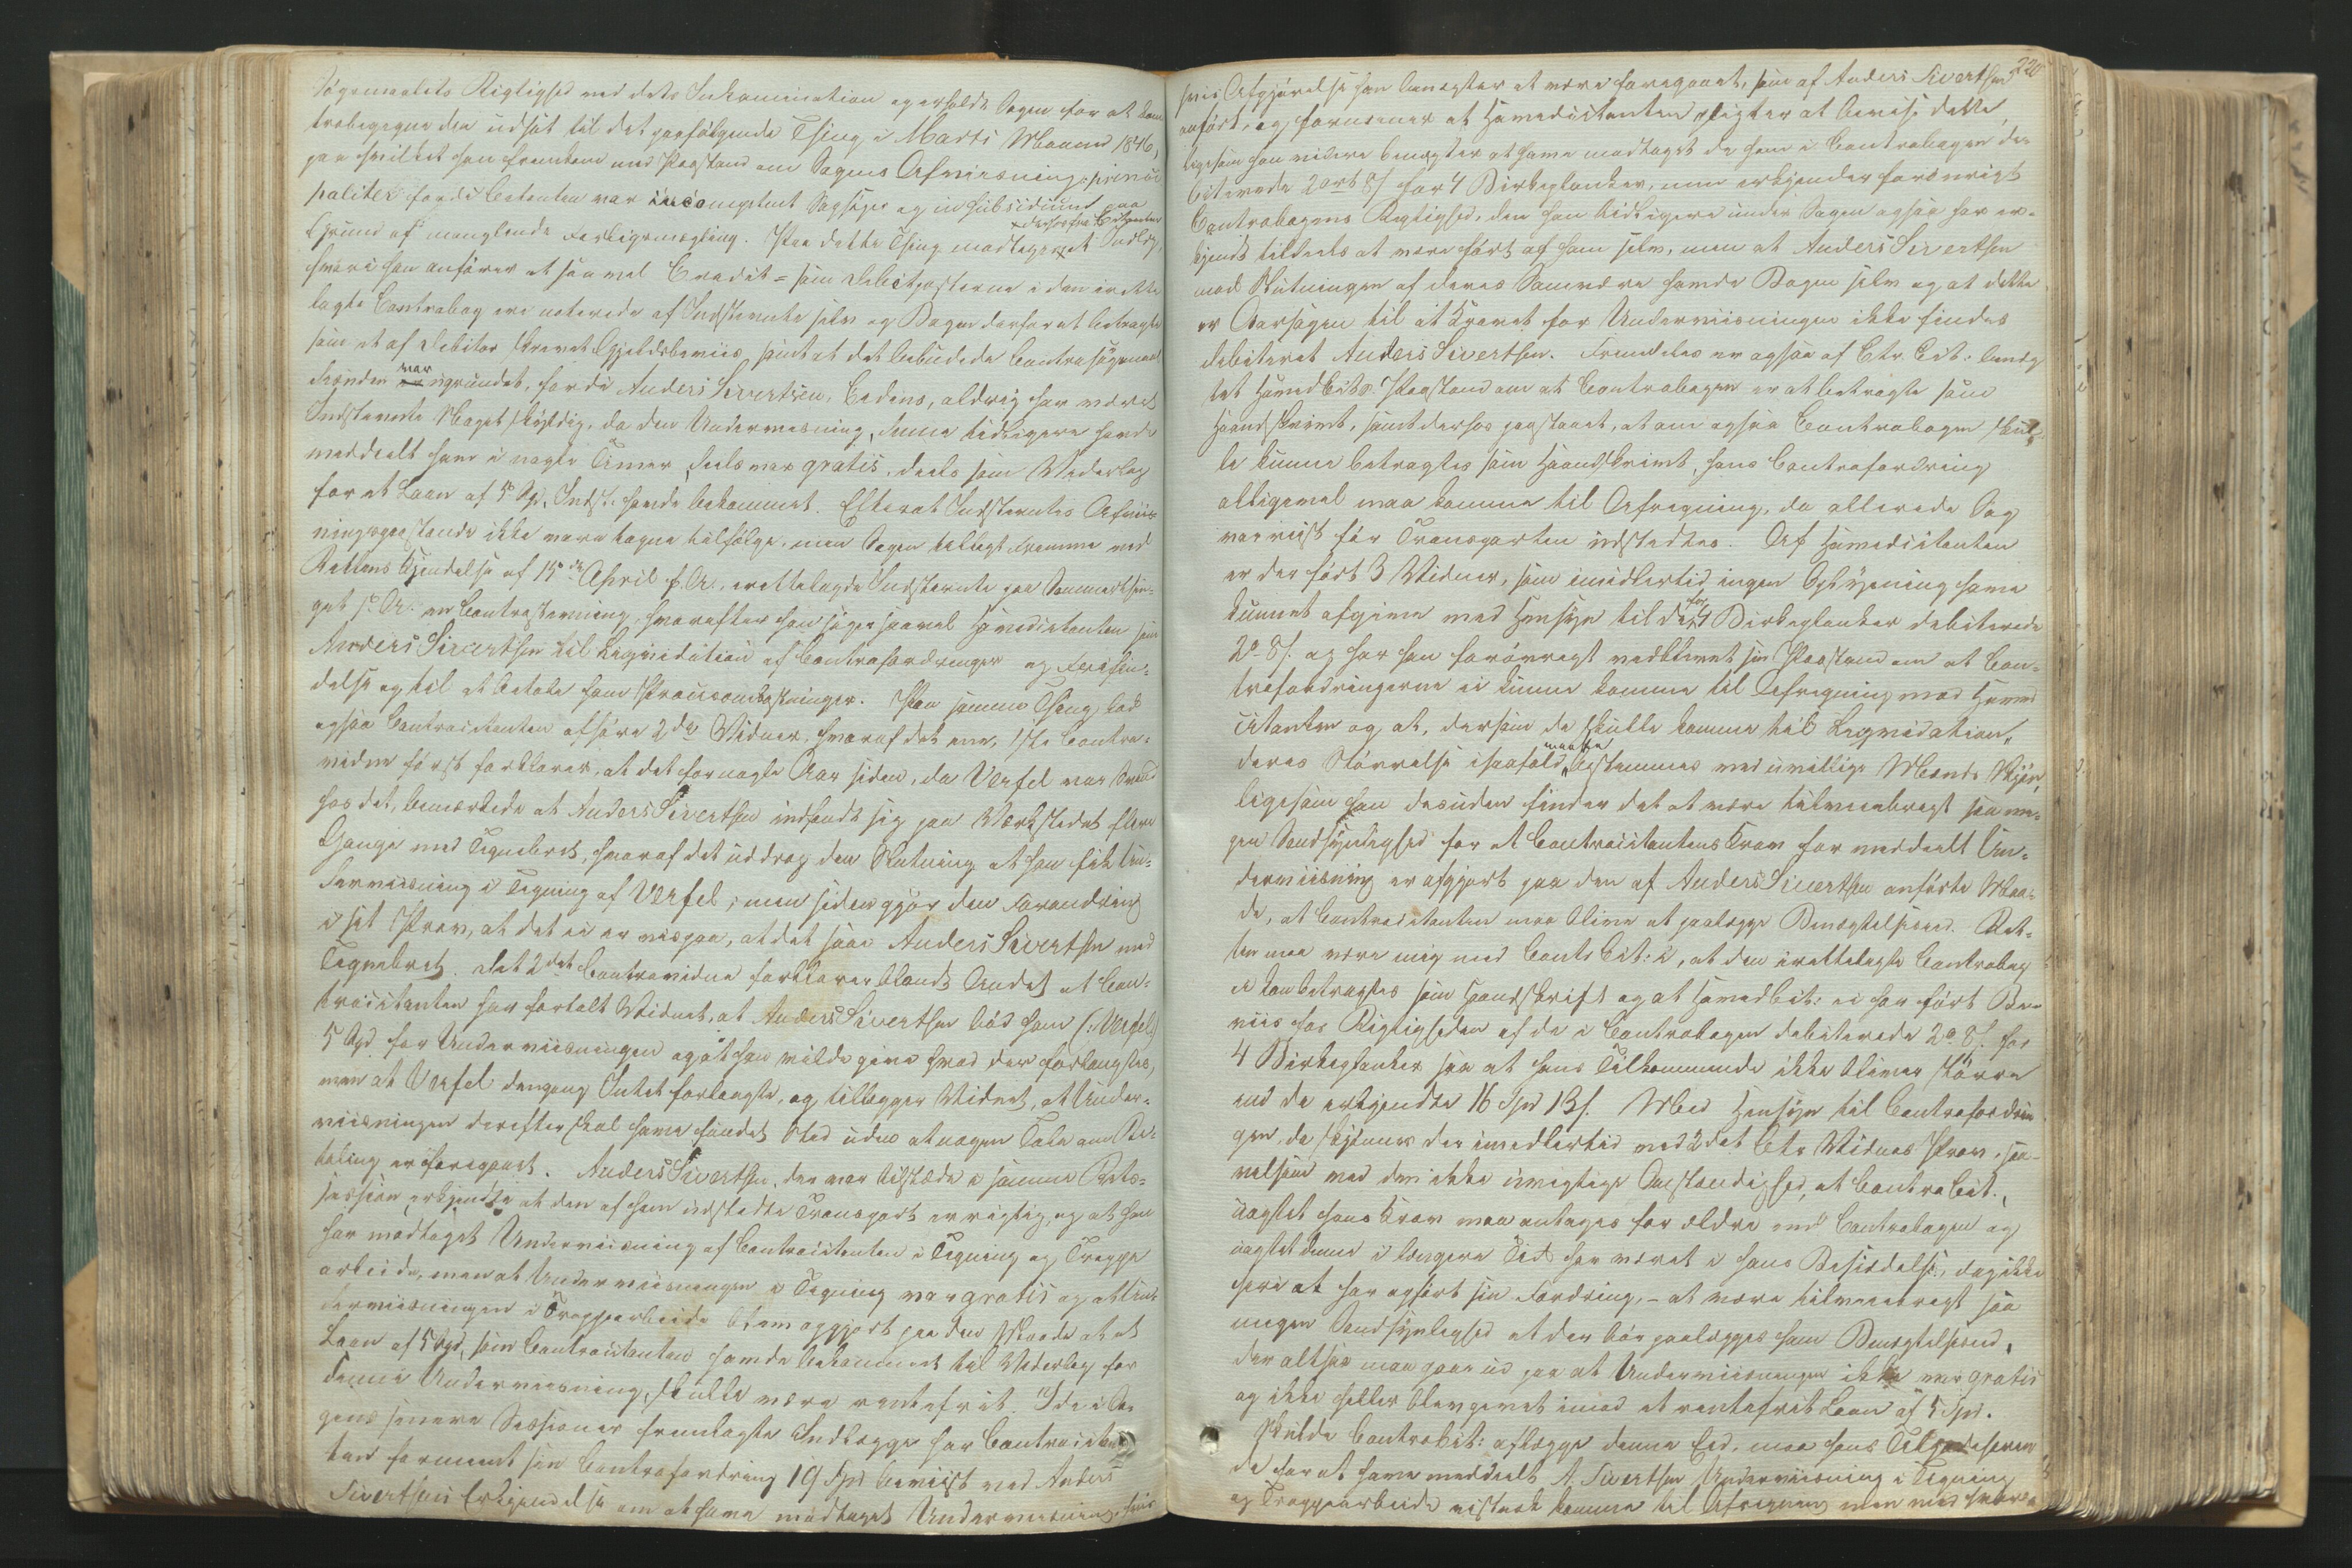 Søgsmaalets Rigtighed med dets Inkamination og erholdt Sagen for at kon-
trabegegne den udsat til det paafølgende Thing i Marts Maaned 1846,
paa hvilket han fremkom med Paastand om Sagens Afviisning, princi
paliter fordi Citanten var incompetent Sagsøger og in subsidium paa
Grund af manglende Forligsmægling. Paa dette Thing modtages et Indlæg,
hvori han anfører at saavel Credit- som Debetposterne i den irette
lagte Contrabog ere noterede af Indstevnte selv og Bogen derfor at betragte
som et af Debitor skrevet Gjeldsbeviis, samt at det bebudede Contrasøgsmaal
var ugrundet, fordi Anders Sivertsen, Cedens, aldrig har været
Indstevnte Noget skyldig, da den Underviisning, denne tidligere havde
meddeelt ham i nogle Timer, deels var gratis, deels som Vederlag
for et Laan af 5 Spd, Indst. havde bekommet. Efterat Indstevntes Afviis
ningspaastande ikke vare tagne tilfølge, men Sagen tillagt Fremme ved
Rettens Kjendelse af 15de April f. A., irettelagde Indstevnte paa Sommerthin-
get s. A. en Contrastevning, hvorefter han søger saavel Hovedcitanten som
Anders Sivertsen til Liqvidation af Contrafordringer og Frifin-
delse og til at betale ham Procesomkostninger. Paa samme Thing lod
ogsaa Contracitanten afhøre 2de Vidner, hvoraf det ene, 1ste Contra-
vidne først forklarer, at det for nogle Aar siden, da Verfel var
hos det, bemærkede at Anders Sivertsen indfandt sig paa Værkstedet flere
Gange med Tegnebret, hvoraf det uddrog den Slutning at han fik Un-
derviisning i Tegning af Verfel; men siden gjør den Forandring
i sit Prov, at det ei er vis paa, at det saae Anders Sivertsen med
Tegnebret. Det 2det Contravidne forklarer blandt Andet at Con-
tracitanten har fortalt Vidnet, at Anders Sivertsen bød ham (: Verfel)
5 Spd for Underviisningen og at han vilde give hvad der forlangtes,
men at Verfel dengang Intet forlangte, og tillægger Vidnet, at Under-
viisningen derefter skal have fundet Sted uden at nogen Tale om Be-
taling er foregaaet. Anders Sivertsen, der var tilstæde i samme Rets-
session erkjendte at den af ham udstedte Transport er rigtig, og at han
har modtaget Underviisning af Contracitanten i Tegning og Trappe
arbeide, men at Underviisningen i Tegning var gratis og at Un-
derviisningen i Trappearbeide blev opgjort paa den Maade at et
Laan af 5 Spd, som Contracitanten havde bekommet til Vederlag for
denne Underviisning, skulde være rentefrit. I de i Sa
gens senere Sessioner fremlagte Indlægge har Contracitan
ten formeent sin Contrafordring 19 Spd beviist ved Anders
Sivertsens Erkjendelse om at have modtaget Underviisning, hvis
220
hvis Afgjørelse han benegter at være foregaaet, som af Anders Sivertsen
anført, og formener at Hovedcitanten pligter at bevise dette,
ligesom han videre benegter at have modtaget de ham i Contrabogen de-
biterede 2 ort 8 s for 4 Birkeplanker, men erkjender forøvrigt
Contrabogens Rigtighed, den han tidligere under Sagen ogsaa har er-
kjendt tildeels at være ført af ham selv, men at Anders Sivertsen
mod Slutningen af deres Samqvem havde Bogen selv og at dette
er Aarsagen til at Kravet for Underviisningen ikke findes
debiteret Anders Sivertsen. Fremdeles er ogsaa af Ctr. Cit: benæg
tet Hoved Cits. Paastand om at Contrabogen er at betragte som
Haandskrivt, samt derhos paastaaet, at om ogsaa Contrabogen skul-
le kunne betragtes som Haandskrivt, hans Contrafordring
alligevel maa komme til Afregning, da allerede Sag
var reist før Transporten udstedtes. Af Hovedcitanten
er der ført 3 Vidner, som imidlertid ingen Oplysning have
kunnet afgive med Hensyn til de for 4 Birkeplanker debiterede
2 o. 8 s. og har han forøvrigt vedblevet sin Paastand om at Con-
trafordringerne ei kunne komme til Afregning mod Hoved
citanten og at, dersom de skulle komme til Liqvidation,
deres Størrelse isaafald maatte bestemmes ved uvillige Mænds Skjøn,
ligesom han desuden finder det at være tilveiebragt saa me-
gen Sandsynlighed for at Contracitantens Krav for meddeelt Un-
derviisning er afgjort paa den af Anders Sivertsen anførte Maa-
de, at Contracitanten maa blive at paalægge Benegtelseseed. Ret-
ten maa være enig med Contr. Cit: i, at den irettelagte Contrabog
ei kan betragtes som Haandskrift og at Hoved Cit: ei har ført Be-
viis for Rigtigheden af de i Contrabogen debiterede 2 o. 8 s. for
4 Birkeplanker saa at hans Tilkommende ikke bliver større
end de erkjendte 16 Spd 13 s. Med Hensyn til Contrafordrin
gen, da skjønnes der imidlertid ved 2det Ctr. Vidnes Prov, saa-
velsom ved den ikke uvigtige Omstændighed, at Contra Cit.,
uagtet hans Krav maa antages for ældre end Contrabogen og
uagtet denne i længere Tid har været i hans Besiddelse, dog ikke
heri at har opført sin Fordring, - at være tilveiebragt saa
megen Sandsynlighed at der bør paalægges ham Benegtelseseed,
der altsaa maa gaae ud paa at Underviisningen ikke var gratis
og ikke heller blev givet imod et rentefrit Laan af 5 Spd.
Skulde Contracit: aflægge denne Eed, maa hans Tilgodehaven
de for at have meddeelt A. Sivertsen Underviisning i Tegning
og Trappearbeide vistnok komme til Afregning men med